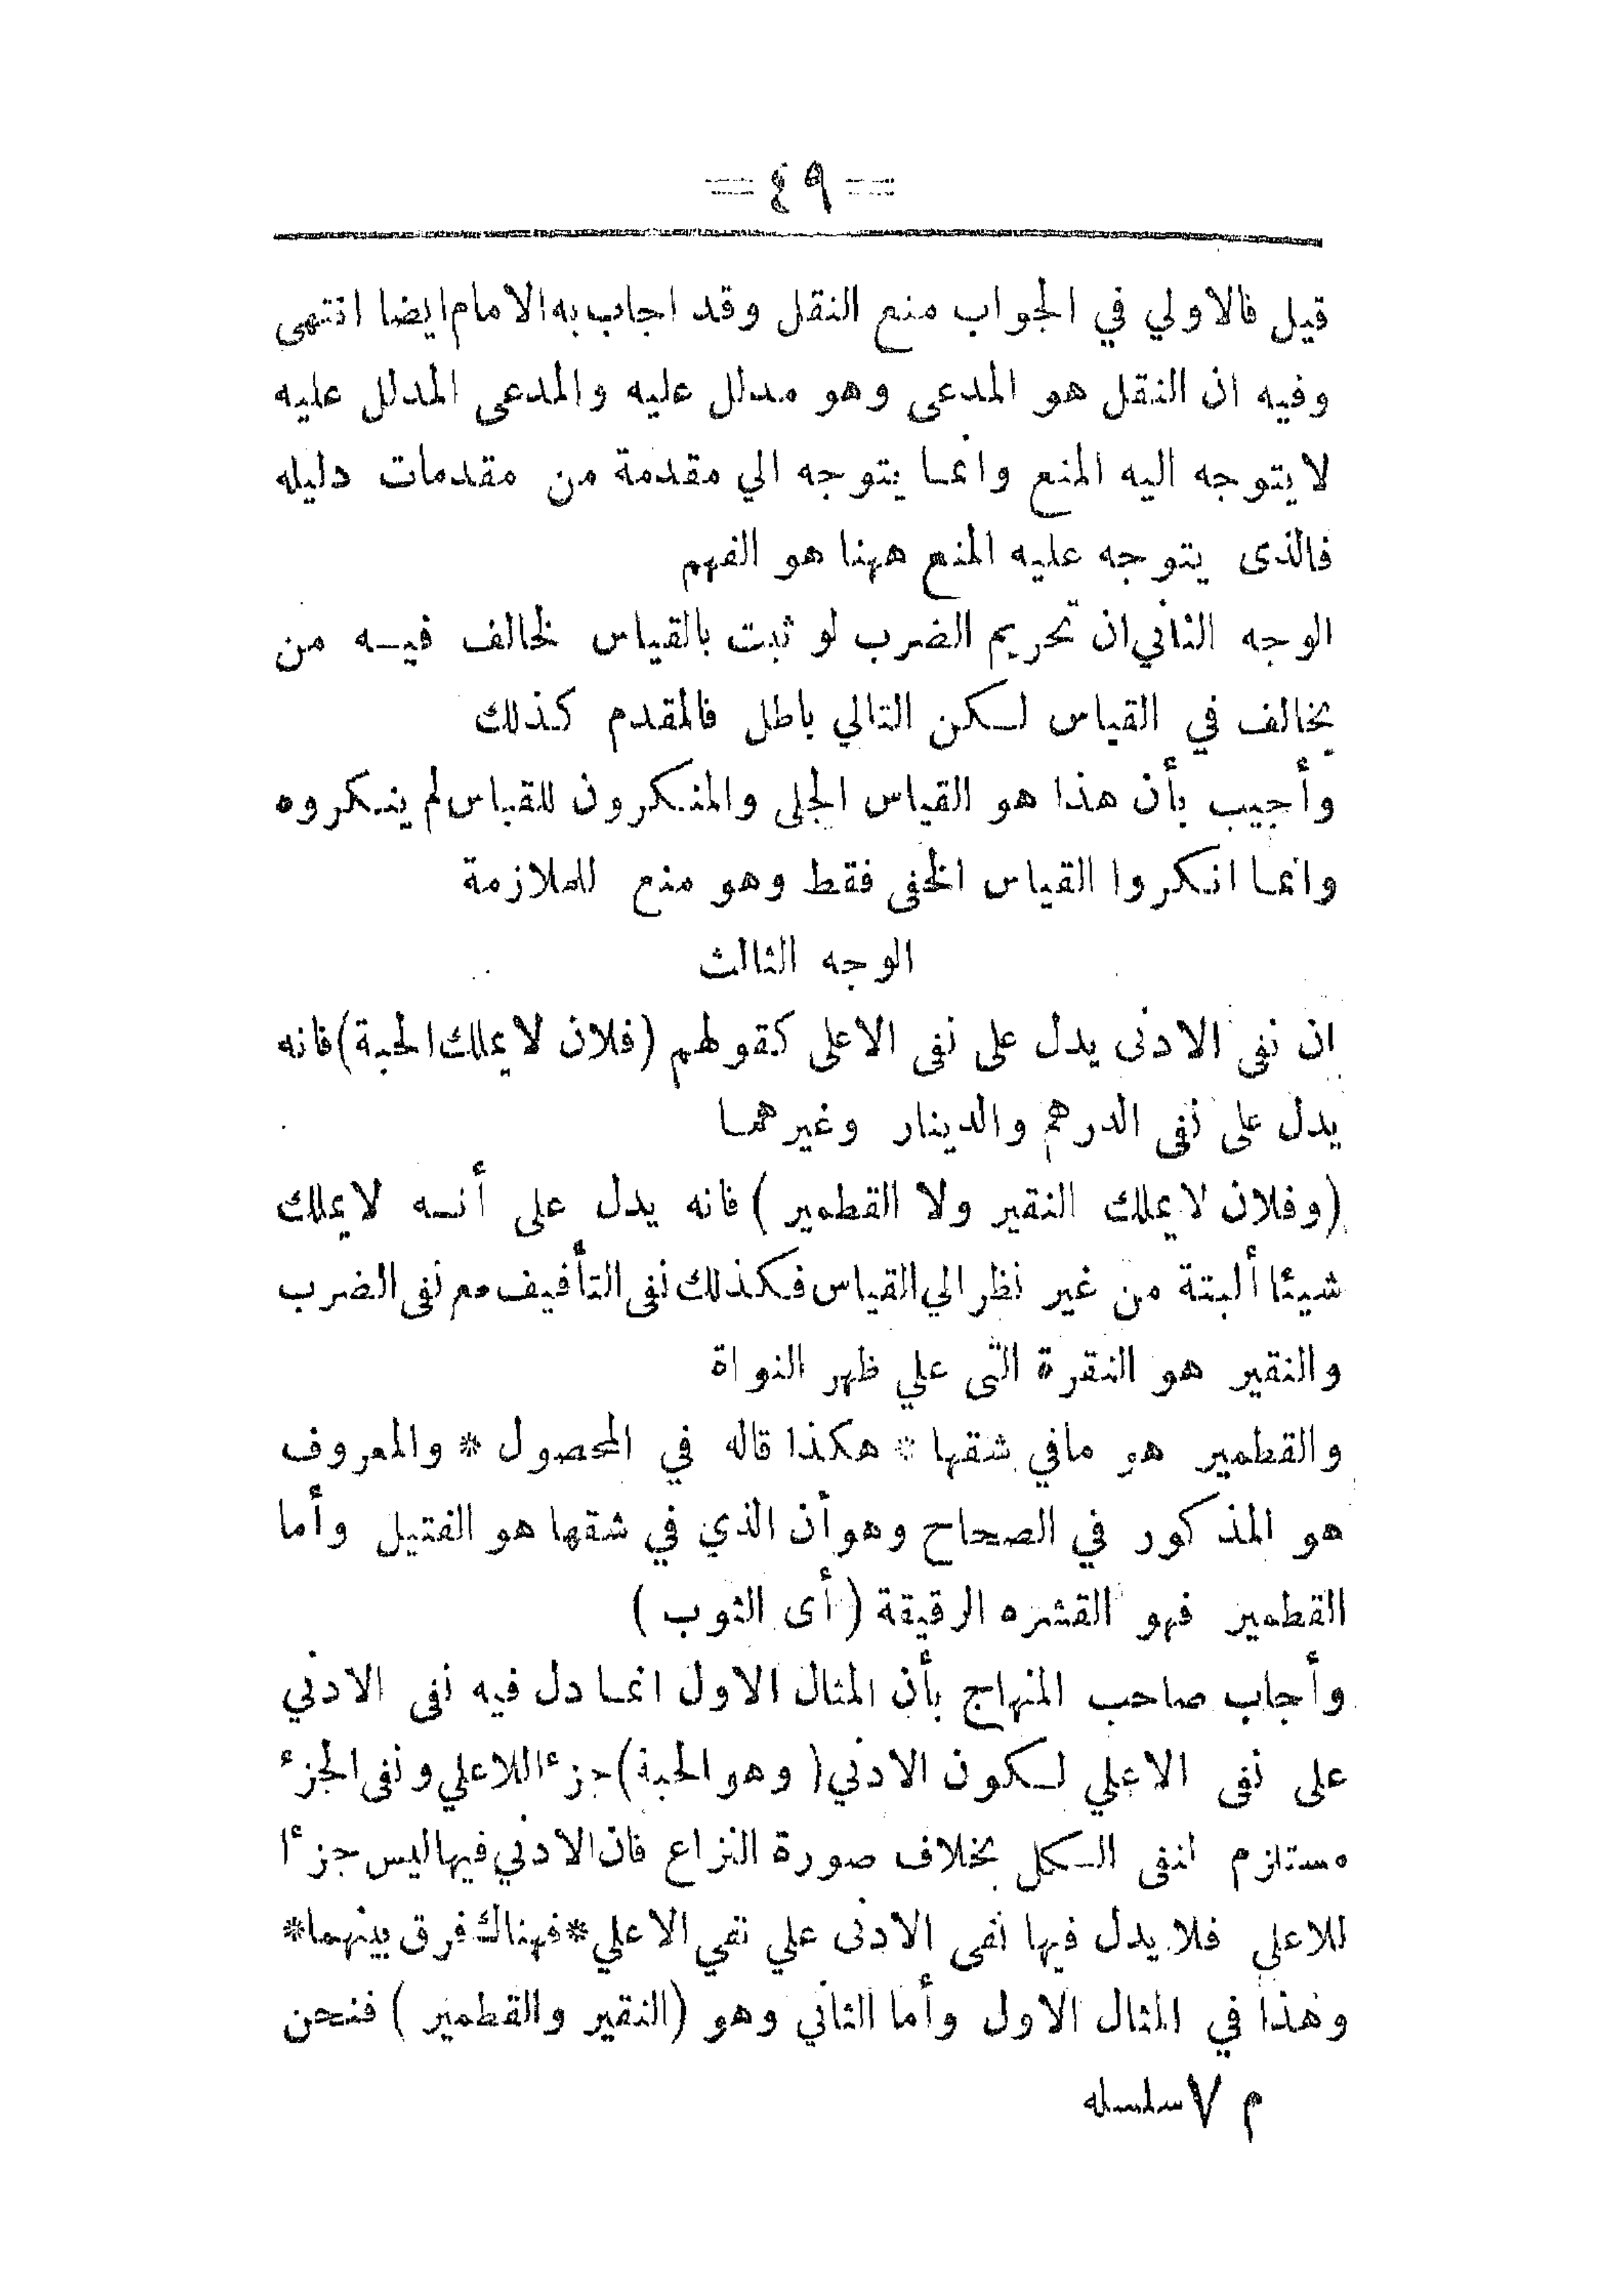 = ٤٩ =
قيل فالاولي في الجواب منع النقل وقد اجاب به الامام ايضا انتهى
وفيه ان النقل هو المدعى وهو مدلل عليه والمدعى المدلل عليه
لا يتوجه اليه المنع وانما يتوجه الي مقدمة من مقدمات دليله
فالذى يتوجه عليه المنع ههنا هو الفهم
الوجه الثاني ان تحريم الضرب لو ثبت بالقياس لخالف فيه من
يخالف في القياس لكن التالي باطل فالمقدم كذلك
وأجيب بأن هذا هو القياس الجلى والمنكرون للقياس لم ينكروه
وانما انكروا القياس الخفى فقط وهو منع للملازمة
الوجه الثالث
ان نفى الادنى يدل على نفى الاعلى كقولهم (فلان لا يملك الحبة) فانه
يدل على نفى الدرهم والدينار وغيرهما
(وفلان لا يملك النقير ولا القطمير) فانه يدل على أنه لا يملك
شيئا ألبتة من غير نظر الي القياس فكذلك نفى التأفيف مع نفى الضرب
والنقير هو النقرة التى علي ظهر النواة
والقطمير هو مافي شقها * هكذا قاله في المحصول * والمعروف
هو المذكور في الصحاح وهو أن الذي في شقها هو الفتيل وأما
القطمير فهو القشره الرقيقة (أى الثوب)
وأجاب صاحب المنهاج بأن المثال الاول انما دل فيه نفى الادني
على نفى الاعلي لكون الادني (وهو الحبة) جزءا للاعلي ونفى الجزء
مستلزم لنفى الكل بخلاف صورة النزاع فان الادني فيها ليس جزءا
للاعلي فلا يدل فيها نفى الادنى علي نفي الاعلي * فهناك فرق بينهما *
وهذا في المثال الاول وأما الثاني وهو (النقير والقطمير) فنحن
م ٧ سلسله